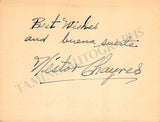 Best Wishes
and buena suerte
Nestor Chayres
TAMINO AUTOGRAPHS